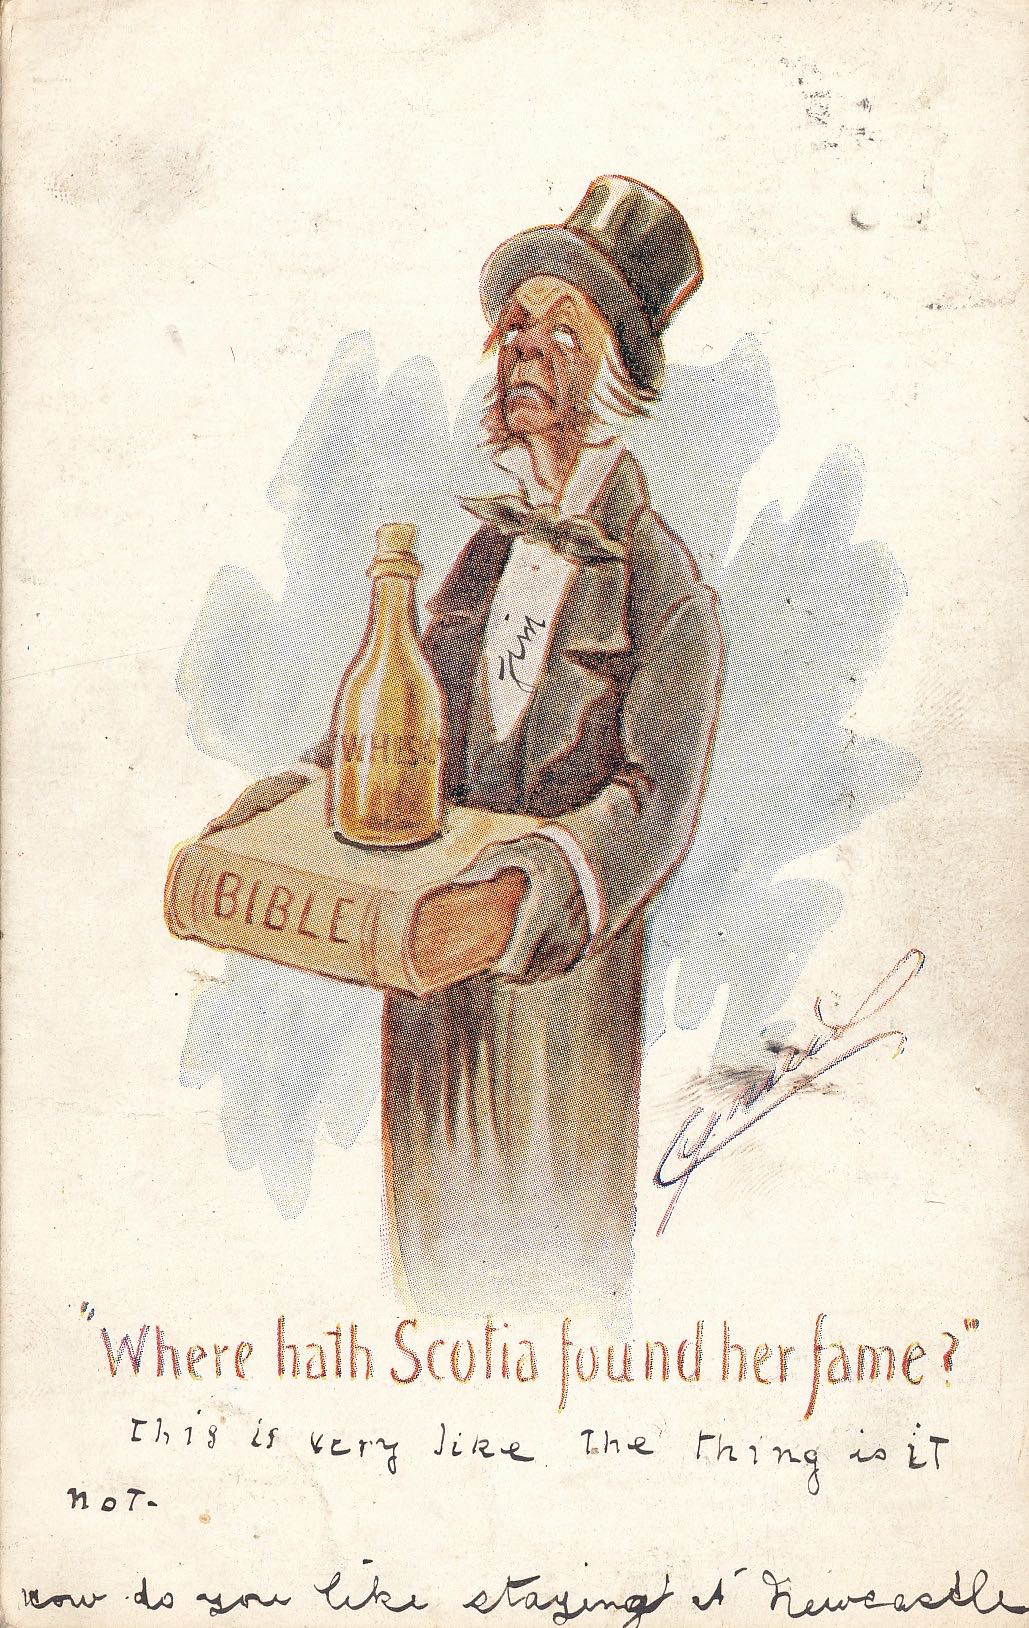 Jim
WHISK
BIBLE
Cynicus
"Where hath Scotia found her fame?"
This is very like the thing is it
not.
how do you like staying at Newcastle